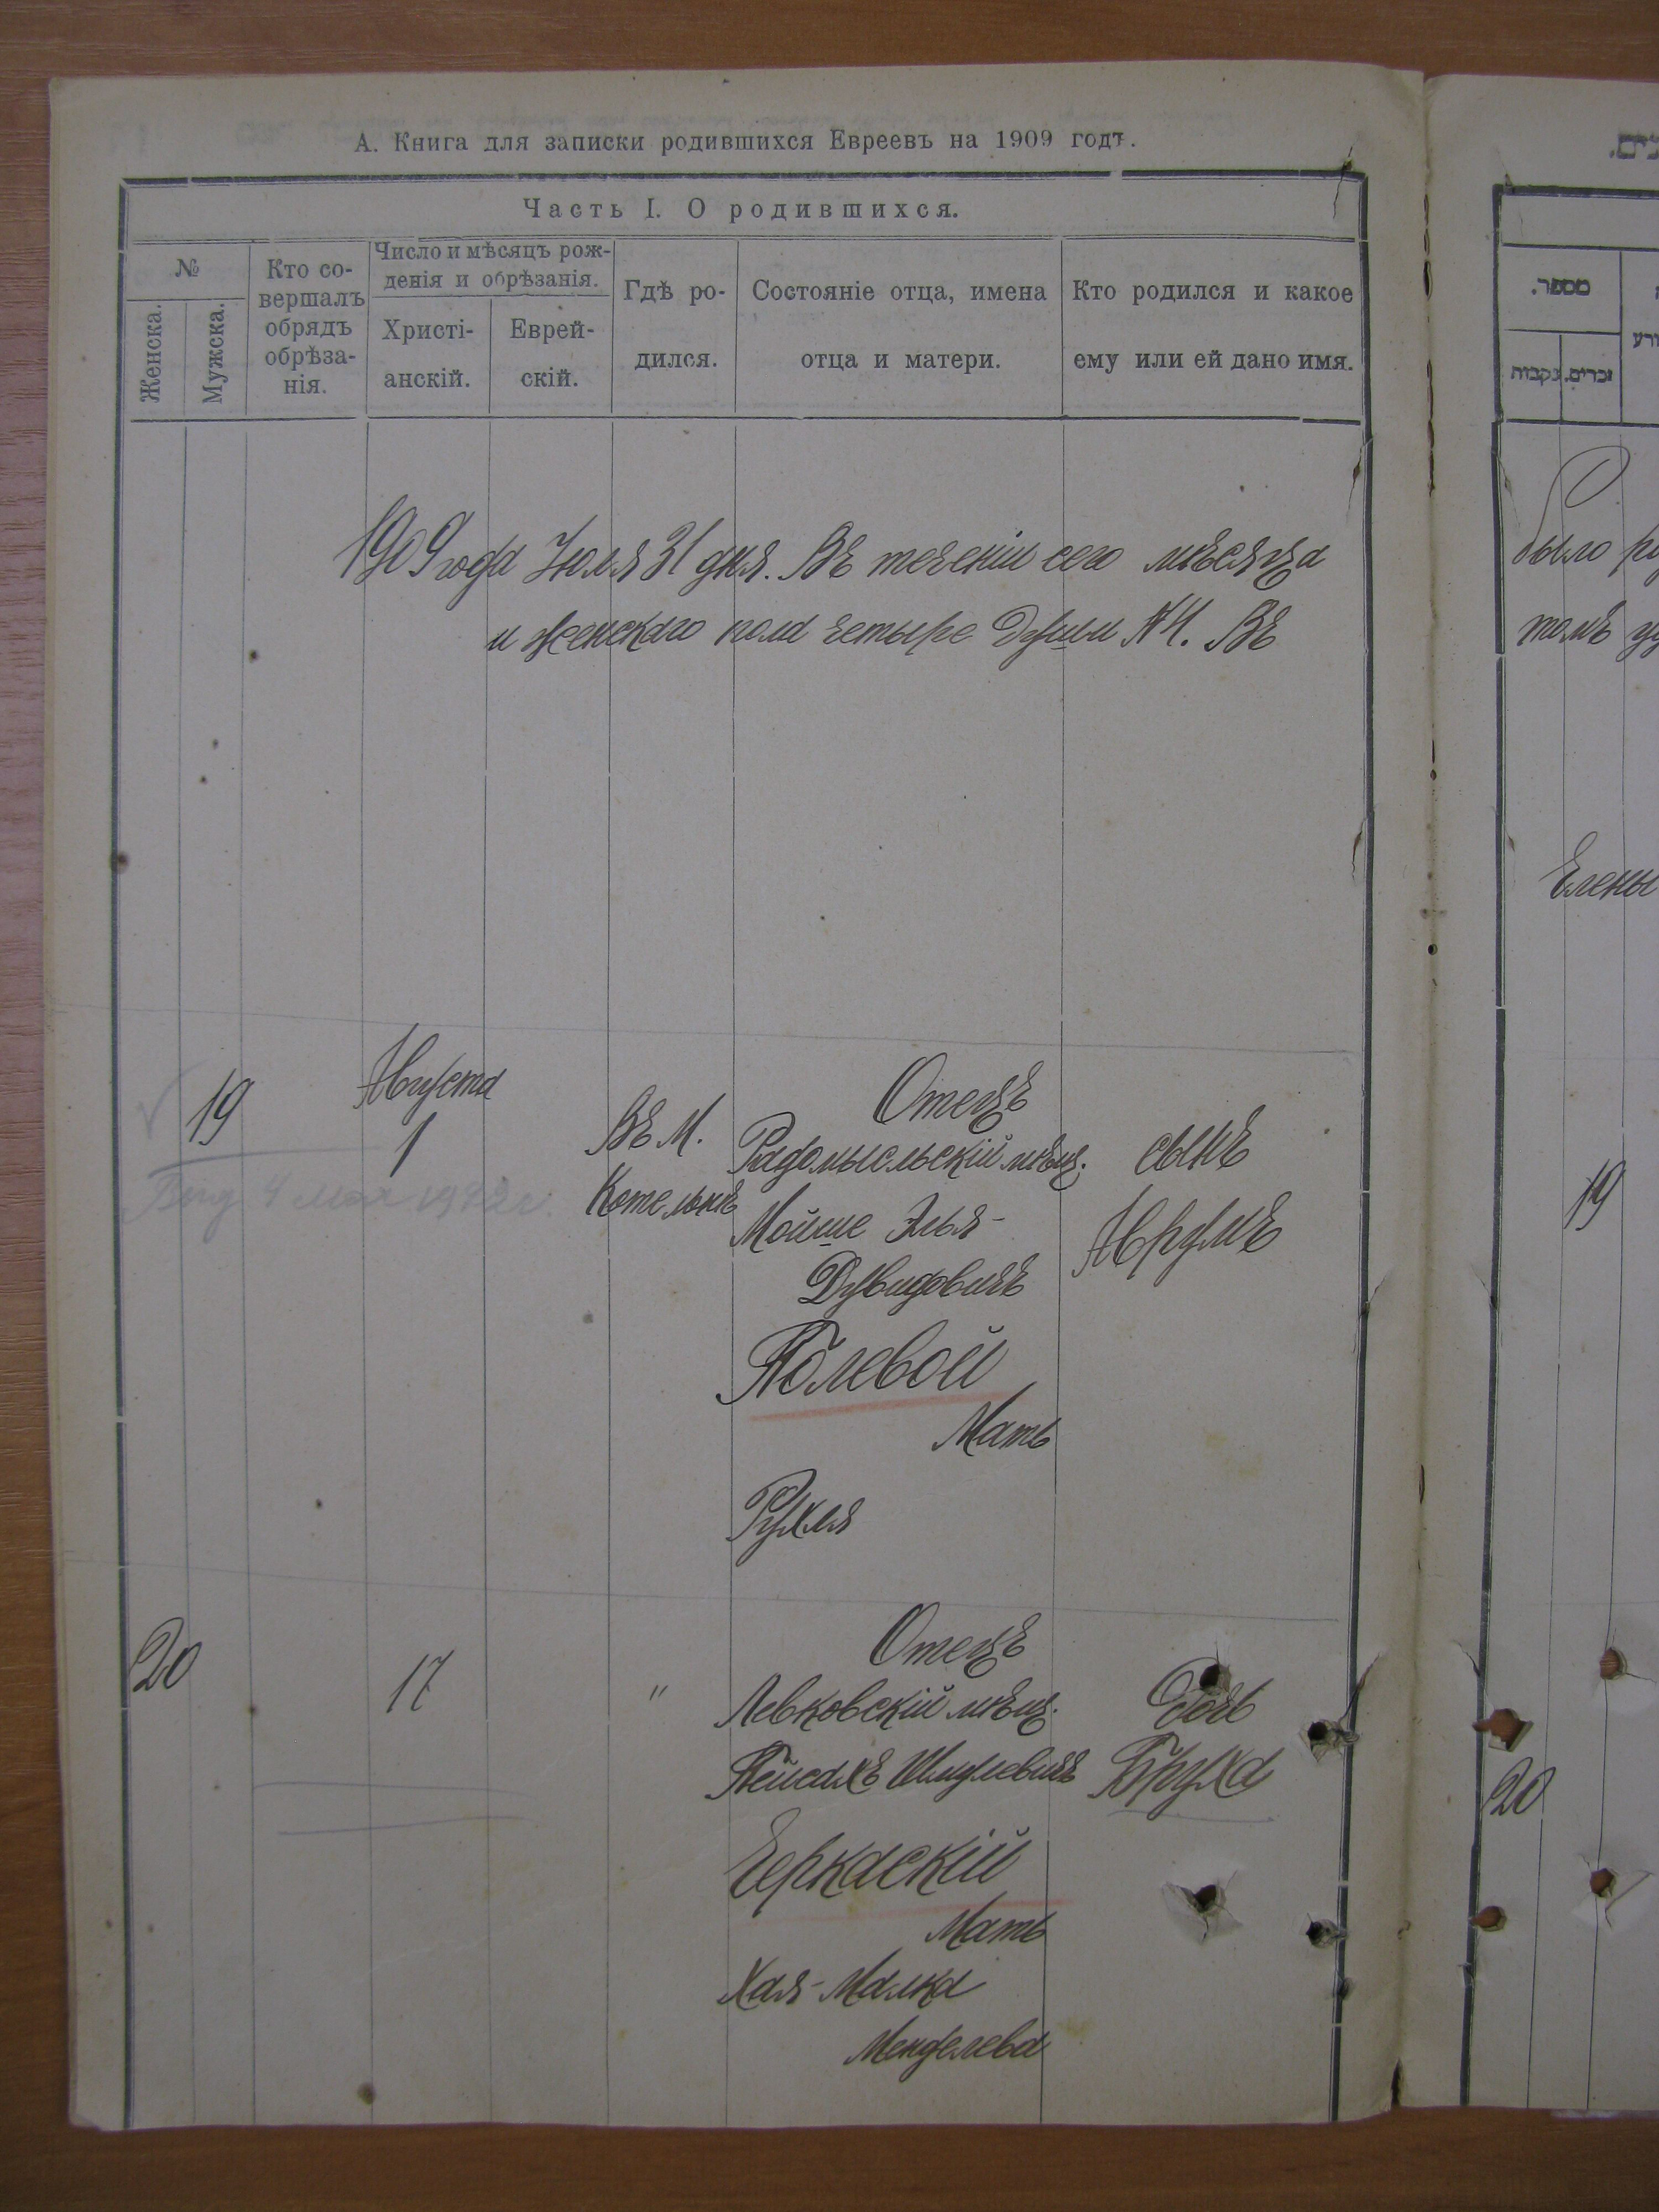 А. Книга для записки родившихся Евреевъ на 1909 годъ.
Часть I. О родившихся.
№
Женска.
Мужска.
Кто со-
вершалъ
обрядъ
обрѣза-
нія.
Число и мѣсяцъ рож-
денія и обрѣзанія.
Христі-
анскій.
Еврей-
скій.
Гдѣ ро-
дился.
Состояніе отца, имена
отца и матери.
Кто родился и какое
ему или ей дано имя.
1909 года Июля 31 дня. Въ теченіи сего мѣсяца
и женского пола четыре души №4. Въ
19
Августа
1
Въ М.
Котельнѣ
Отецъ
Радомысльскій мѣщ.
Мойше Элья-
Дувидовичъ
Полевой
Мать
Рухля
сынъ
Аврумъ
4 мая 1972 г.
20
17
"
Отецъ
Левковскій мѣщ.
Пейсахъ Шмулевичъ
Черкаскій
Мать
Хая-Малка
Менделева
Дочь
Бруха
מספר.
זכרים.
נקבות
было
томъ
Елены
19
20